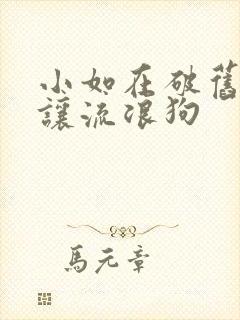 小如在破舊
讓流浪狗
馬元章